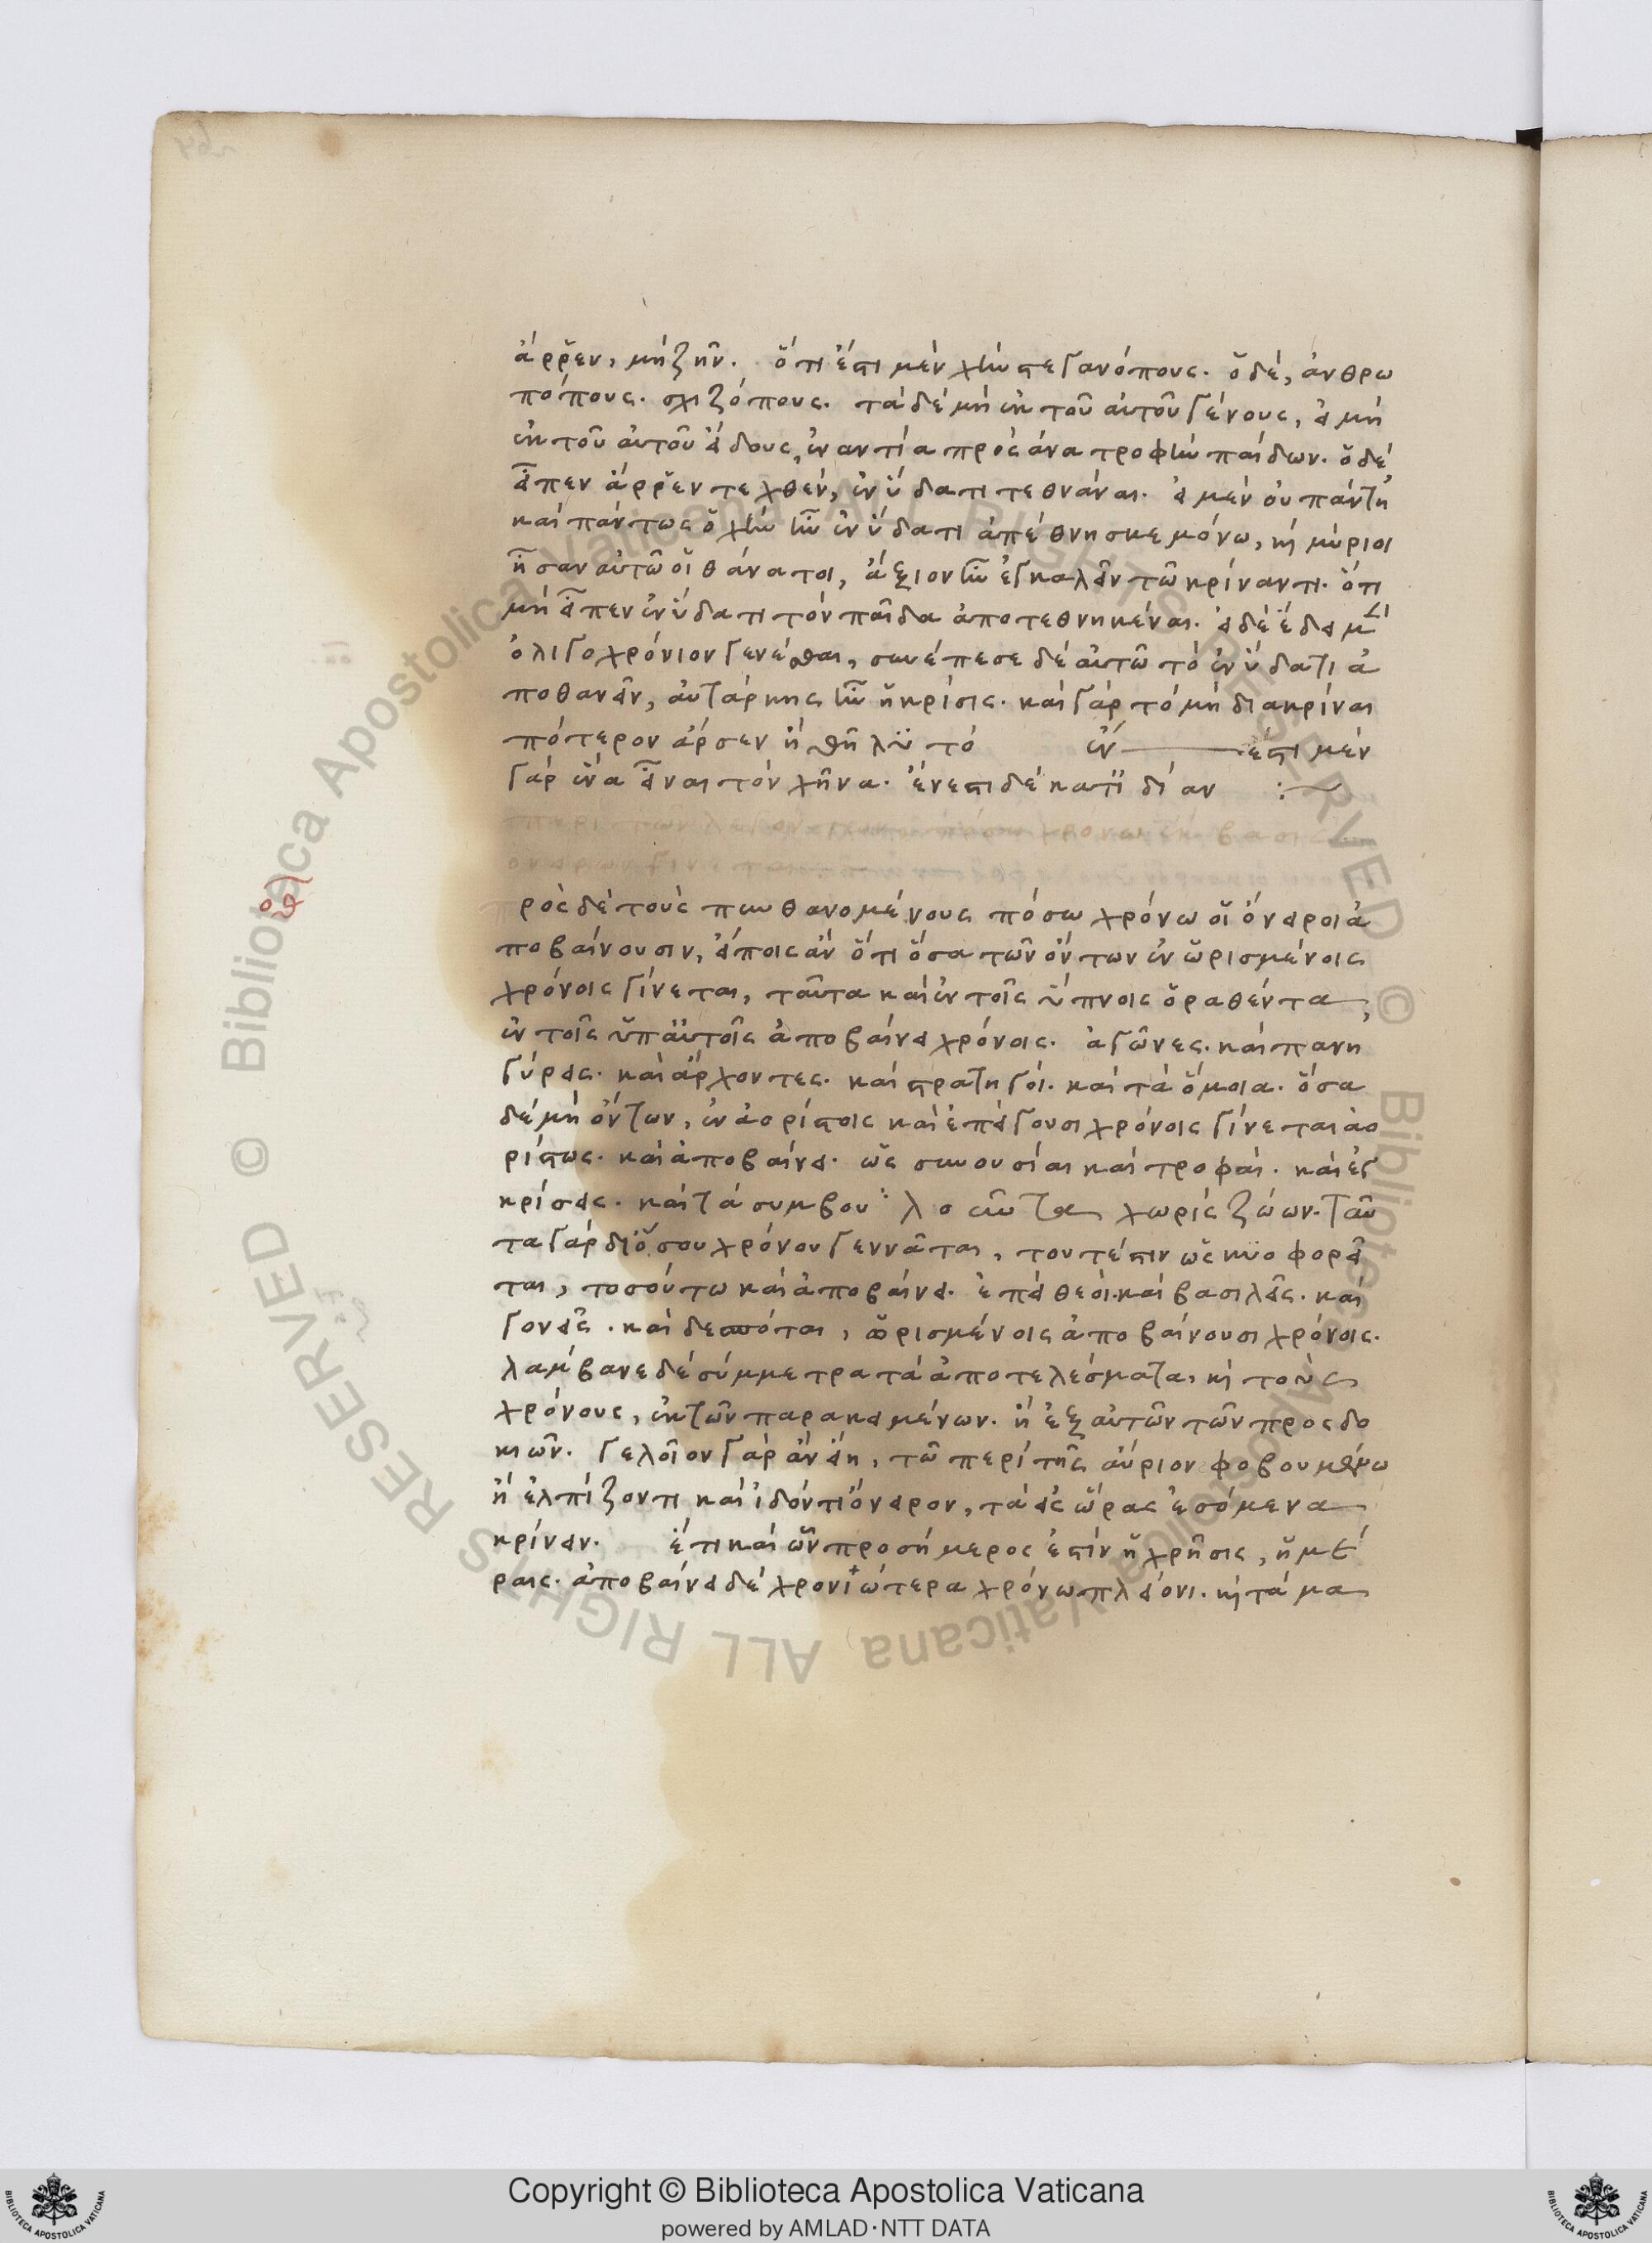 ἄρρεν, μὴ ζῆν. ὅτι ἐστὶ μὲν χὴν στεγανόπους. ὁ δέ, ἀνθρω
πόπους. σχιζόπους. τὰ δὲ μὴ ἐκ τοῦ αὐτοῦ γένους, εἰ μὴ
ἐκ τοῦ αὐτοῦ εἴδους, ἐναντία πρὸς ἀνατροφὴν παίδων. ὁ δὲ
εἶπεν ἄρρεν τεχθέν, ἐν ὕδατι τεθνάναι. εἰ μὲν οὐ πάντη
καὶ πάντως ὁ χὴν ἦν ἐν ὕδατι ἀπέθνησκε μόνω, καὶ μύριοι
ἦσαν αὐτῶ οἱ θάνατοι, ἄξιον ἦν ἐγκαλεῖν τῶ κρίναντι. ὅτι
μὴ εἶπεν ἐν ὕδατι τὸν παῖδα ἀποτεθνηκέναι. εἰ δὲ ἔδει μὲν
ὀλιγοχρόνιον γενέσθαι, συνέπεσε δὲ αὐτῶ τὸ ἐν ὕδατι ἀ
ποθανεῖν, αὐτάρκης ἦν ἡ κρίσις. καὶ γὰρ τὸ μὴ διακρίναι
πότερον ἄρσεν ἢ θῆλυ τὸ ἐν ἐστι μὲν
γὰρ ἵνα εἶναι τὸν χῆνα. ἔνεστι δὲ κατϊδίαν :~
ρὸς δὲ τοὺς πυνθανομένους πόσω χρόνω οἱ ὄνειροι ἀ
ποβαίνουσιν, εἴποις ἂν ὅτι ὅσα τῶν ὄντων ἐν ὡρισμένοις
χρόνοις γίνεται, ταῦτα καὶ ἐν τοῖς ὕπνοις ὁραθέντα,
ἐν τοῖς ὑπαὐτοῖς ἀποβαίνει χρόνοις. ἀγῶνες. καὶ πανη
γύρεις. καὶ ἄρχοντες. καὶ στρατηγοί. καὶ τὰ ὅμοια. ὅσα
δὲ μὴ ὄντων, ἐν ἀορίστοις καὶ ἐπείγουσι χρόνοις γίνεται ἀο
ρίστως. καὶ ἀποβαίνει. ὡς συνουσίαι καὶ τροφαί. καὶ ἐγ
κρίσεις. καὶ τὰ συμβου χωρὶς ζώων. ταῦ
τα γὰρ διὅσου χρόνου γεννᾶται, τουτέστιν ὡς κυοφορεῖ
ται, τοσούτω καὶ ἀποβαίνει. ἐπεὶ θεοί. καὶ βασιλεῖς. καὶ
γονεῖς. καὶ δεσπόται, ὡρισμένοις ἀποβαίνουσι χρόνοις.
λάμβανε δὲ σύμμετρα τὰ ἀποτελέσματα, καὶ τοὺς
χρόνους, ἐκ τῶν παρακειμένων. ἢ ἐξ αὐτῶν τῶν προσδο
κιῶν. γελοῖον γὰρ ἂν εἴη, τῶ περὶ τῆς αὔριον φοβουμένω
ἢ ἐλπίζοντι καὶ ἰδόντι ὄνειρον, τὰ εἰς ὥρας ἐσόμενα
κρίνειν. ἔτι καὶ ὧν προσήμερος ἐστὶν ἡ χρῆσις, ἡμέ
ραις. ἀποβαίνει δὲ χρονιώτερα χρόνω πλείονι. καὶ τὰ μα